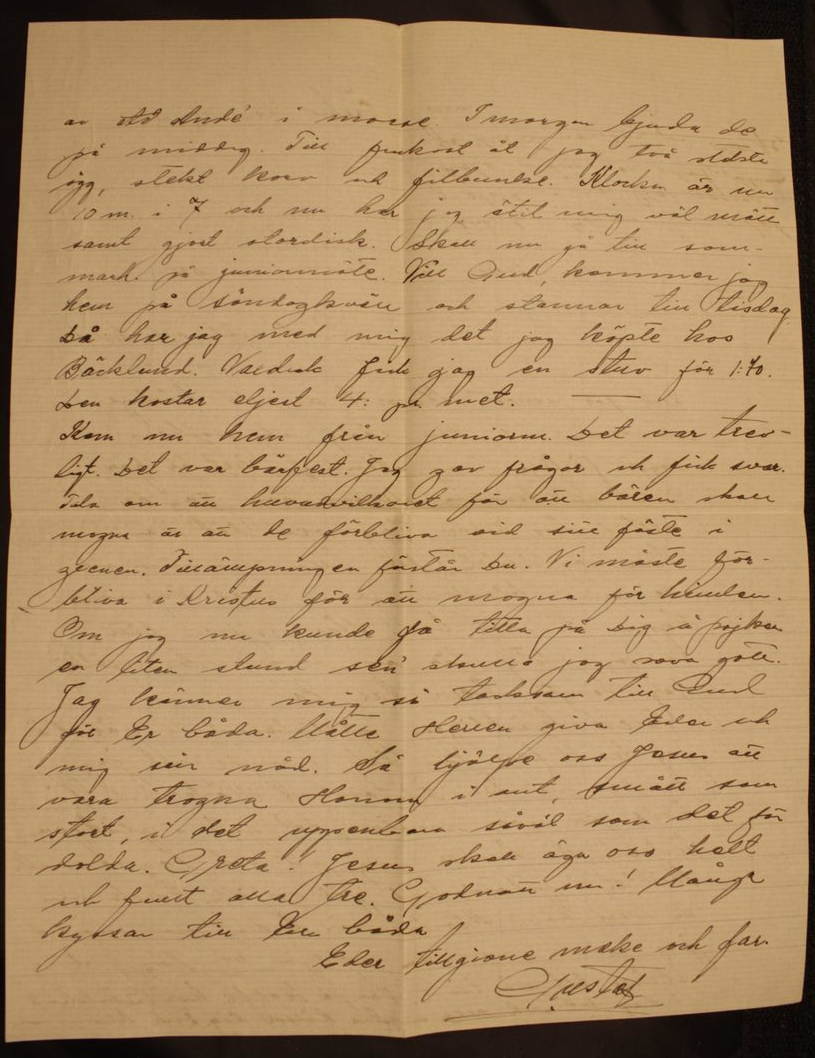 av André i morse. I morgon bjuda de
på middag. Till frukost åt jag två stekta
ägg, stekt korv och filbunke. Klockan är nu
10 m. i 7 och nu har jag ätit mig väl mätt
samt gjort stordisk. Skall nu gå till som-
mark på juniormöte. Vill Gud, kommer jag
hem på söndagkväll och stannar till tisdag.
Då har jag med mig det jag köpte hos
Bäcklund. Vaxduk fick jag en stuv för 1:70.
Den kostar eljest 4: pr met.
Kom nu hem från juniorm. Det var trev-
ligt. Det var bärfest. Jag gav frågor och fick svar.
Tala om att huvudvillkoret för att bären skall
mogna är att de förbliva vid sitt fäste i
grenen. Tillämpningen förstår Du. Vi måste för-
bliva i Kristus för att mogna för himlen.
Om jag nu kunde få titta på Dig å pojken
en liten stund sen skulle jag sova gott.
Jag känner mig så tacksam till Gud
för Er båda. Måtte Herren giva Eder och
mig sin nåd. Så hjälpe oss Jesus att
vara trogna Honom i allt, smått som
stort, i det uppenbara såväl som det för
dolda. Greta! Jesus skall äga oss helt
och fullt alla tre. Godnatt nu! Många
kyssar till Er båda
Eder tillgivne make och far.
Gustaf